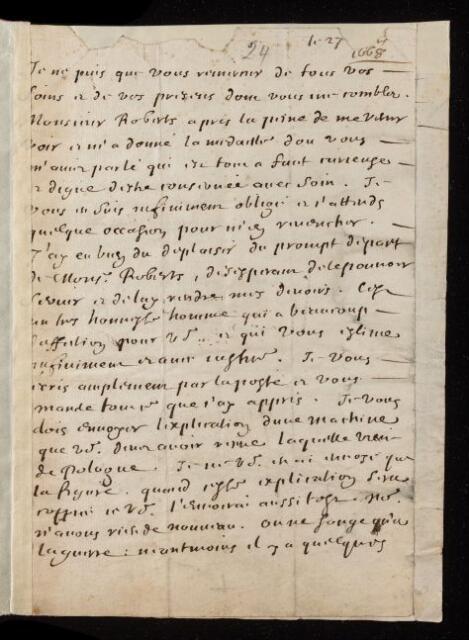 24 le 27
1668
Je ne puis que vous remercier de tous vos
soins et de vos presens dont vous me comblez.
Monsieur Roberts apres la peine de me venir
voir et m'a donné la medaille dou vous
m'aviez parlé qui est tout a fait curieuse
et digne destre conservée avec soin. Je
vous en suis infiniment obligé et j'attends
quelque occasion pour m'en revencher.
J'ay eu bien du deplaisir du prompt depart
de Mons.r Roberts, desesperant de le pouvoir
servir et de luy rendre mes devoirs. C'est
un tres honneste homme qui a beaucoup
d'affection pour vs. et qui vous estime
infiniment et avec justice. Je vous
écris amplement par la poste et vous
mande tout ce que j'ay appris. Je vous
dois envoyer l'explication d'une machine
que vs. doit avoir laquelle vient
de Pologne. Je ne vs. que
la figure. quand cette explication sera
copiée vs. l'envoirai aussi tost. Nous
n'avons rien de nouveau. on ne songe qu'a
la guerre: neantmoins il y a quelques